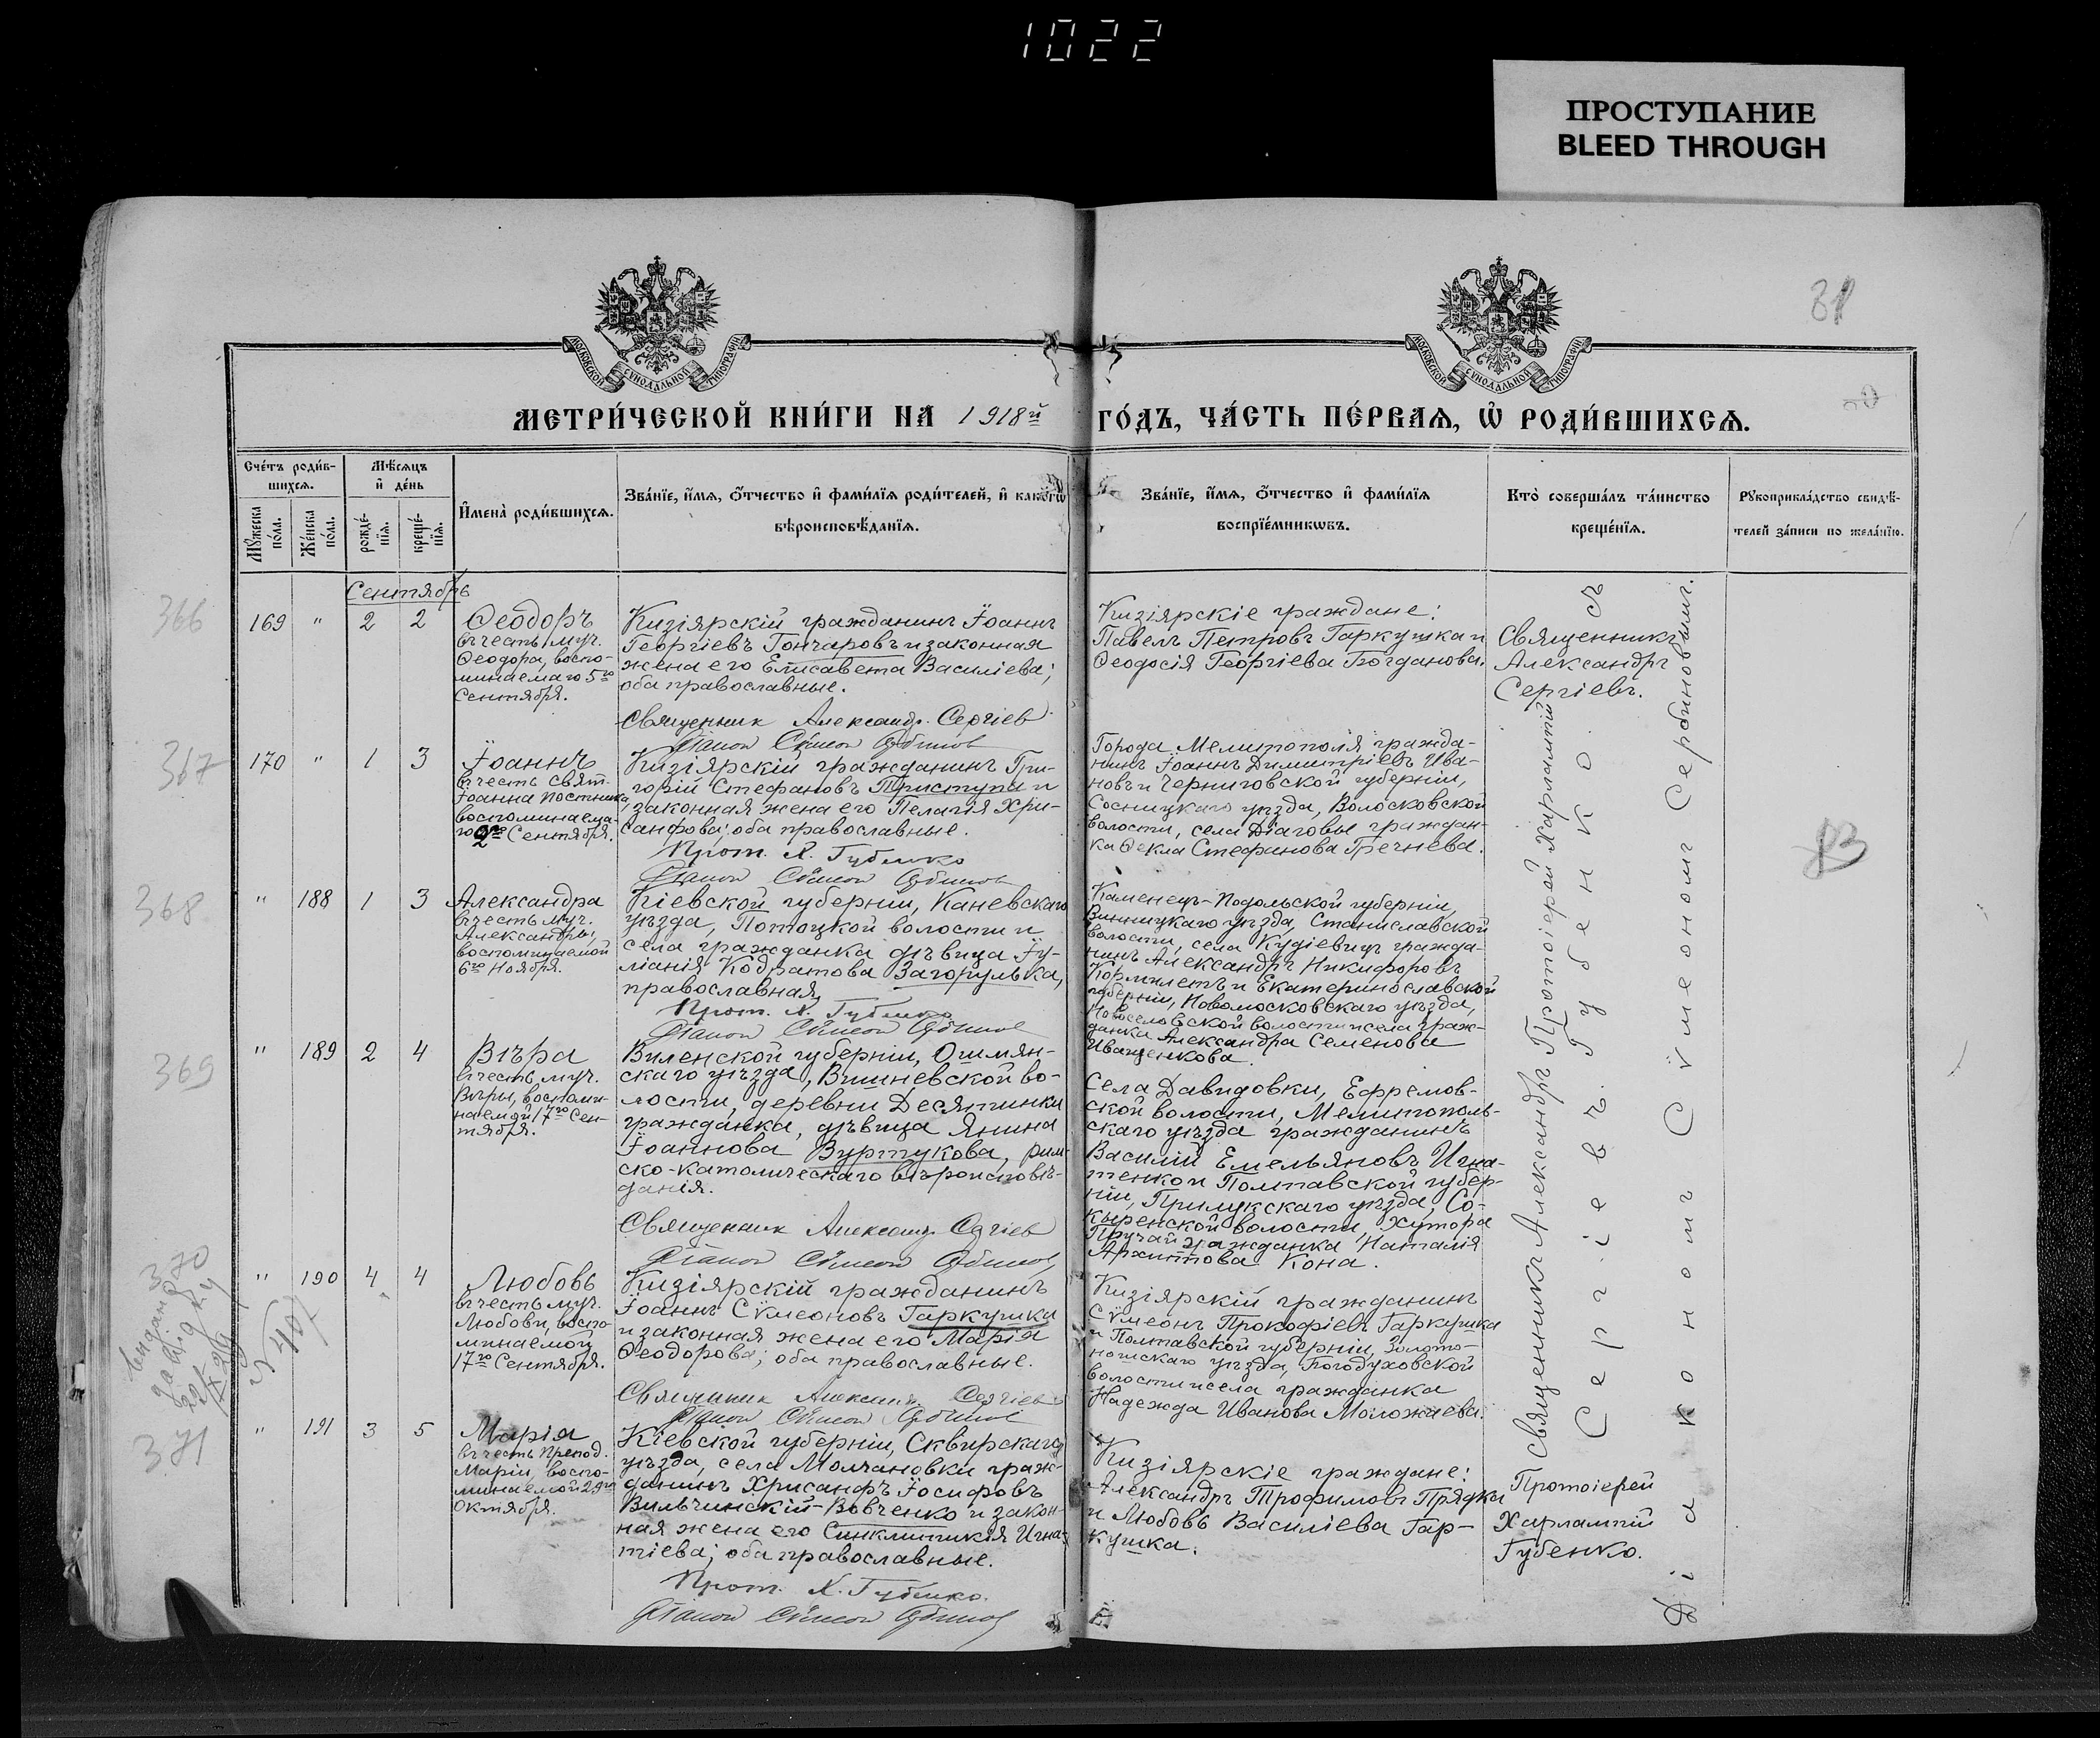 1022
ПРОСТУПАНИЕ
BLEED THROUGH
81
МОСКОВСКОЙ СѴНОДАЛЬНОЙ ТИПОГРАФІИ
МОСКОВСКОЙ СѴНОДАЛЬНОЙ ТИПОГРАФІИ
МЕТРИ́ЧЕСКОЙ КНИ́ГИ НА 1918й ГО́ДЪ, ЧА́СТЬ ПЕ́РВАЯ, Ѡ РОДИ́ВШИХСЯ.
Сче́тъ роди́в-
шихся.
Мѣсяцъ
и де́нь
Мꙋ́жеска по́ла.
Же́нска по́ла.
рожде́-
нія.
креще́-
нія.
Имена̀ роди́вшихся.
Зва́нїе, и́мя, ѻ́тчество и фами́лїя роди́телей, и како́гѡ
вѣроисповѣ́данїя.
Зва́нїе, и́мя, ѻ́тчество и фами́лїя
воспрїе́мникѡвъ.
Кто̀ соверша́лъ та́инство
креще́нїя.
Рꙋкоприкла́дство свидѣ́-
телей за́писи по жела́нїю.
Сентябрь
366
169 " 2 2
Ѳеодоръ
въ честь муч.
Ѳеодора, воспо-
минаемаго 5го
Сентября.
Кизіярскій гражданинъ Іоаннъ
Георгіевъ Гончаровъ и законная
жена его Елисавета Василіева;
оба православные.
Священник Александр Сергіев
Діакон Сѵмеон
Кизіярскіе граждане:
Павелъ Петровъ Гаркушка и
Ѳеодосія Георгіева Богданова.
Священникъ
Александръ
Сергіевъ.
367
170 " 1 3
Іоаннъ
въ честь свят.
Іоанна Постника,
воспоминаема-
го 2го Сентября.
Кизіярскій гражданинъ Гри-
горій Стефановъ Приступа и
законная жена его Пелагія Хри-
санфова; оба православные.
Прот. Х. Губенко
Діакон Сѵмеон
Города Мелитополя гражда-
нинъ Іоаннъ Димитріевъ Ива-
новъ и Черниговской губерніи,
Сосницкаго уѣзда, Волосковской
волости, села Дяговы граждан-
ка Ѳекла Стефанова Гречнева.
83
368
" 188 1 3
Александра
въ честь муч.
Александры,
воспоминаемой
6го Ноября.
Кіевской губерніи, Каневскаго
уѣзда, Потоцкой волости и
села гражданка дѣвица Іу-
ліанія Кодратова Загорулька,
православная.
Прот. Х. Губенко
Діакон Сѵмеон
Каменецъ-Подольской губерніи,
Винницкаго уѣзда, Станиславской
волости, села Кудіевицъ гражда-
нинъ Александръ Никифоровъ
Кормилетъ и Екатеринославской
губерніи, Новомосковскаго уѣзда,
Новоселовской волости и села граж-
данка Александра Семенова
Иващенкова.
369
" 189 2 4
Вѣра
въ честь муч.
Вѣры, воспоми-
наемой 17го Сен-
тября.
Виленской губерніи, Ошмян-
скаго уѣзда, Вишневской во-
лости, деревни Десятинки
гражданка, дѣвица Янина
Іоаннова Вуртукова, рим-
ско-католическаго вѣроисповѣ-
данія.
Священник Александр Сергіев
Діакон Сѵмеон
Села Давидовки, Ефремов-
ской волости, Мелитополь-
скаго уѣзда гражданинъ
Василій Емельяновъ Игна-
тенко и Полтавской губер-
ніи, Прилукскаго уѣзда, Со-
кыренской волости, хутора
Пручай гражданка Наталія
Архиппова Кона.
370
" 190 4 4
Любовь
въ честь муч.
Любови, воспо-
минаемой
17го Сентября.
Кизіярскій гражданинъ
Іоаннъ Сѵмеоновъ Гаркушка
и законная жена его Марія
Ѳеодорова; оба православные.
Священник Александр Сергіев
Діакон Сѵмеон
Кизіярскій гражданинъ
Сѵмеонъ Прокофіевъ Гаркушка
и Полтавской губерніи, Золото-
ношскаго уѣзда, Богодуховской
волости и села гражданка
Надежда Иванова Моложаева.
371
" 191 3 5
Марія
въ честь Препод.
Маріи, воспо-
минаемой 29го
Октября.
Кіевской губерніи, Сквирскаго
уѣзда, села Молчановки граж-
данинъ Хрисанфъ Іосифовъ
Вильчинскій-Вовченко и закон-
ная жена его Синклитикія Игна-
тіева; оба православные.
Прот. Х. Губенко.
Діакон Сѵмеон
Кизіярскіе граждане:
Александръ Трофимовъ Прядка
и Любовь Василіева Гар-
кушка.
Протоіерей
Харлампій
Губенко.
Священникъ Александръ Сергіевъ.
Протоіерей Харлампій Губенко. съ
Діакономъ Сѵмеономъ Сербиновымъ.